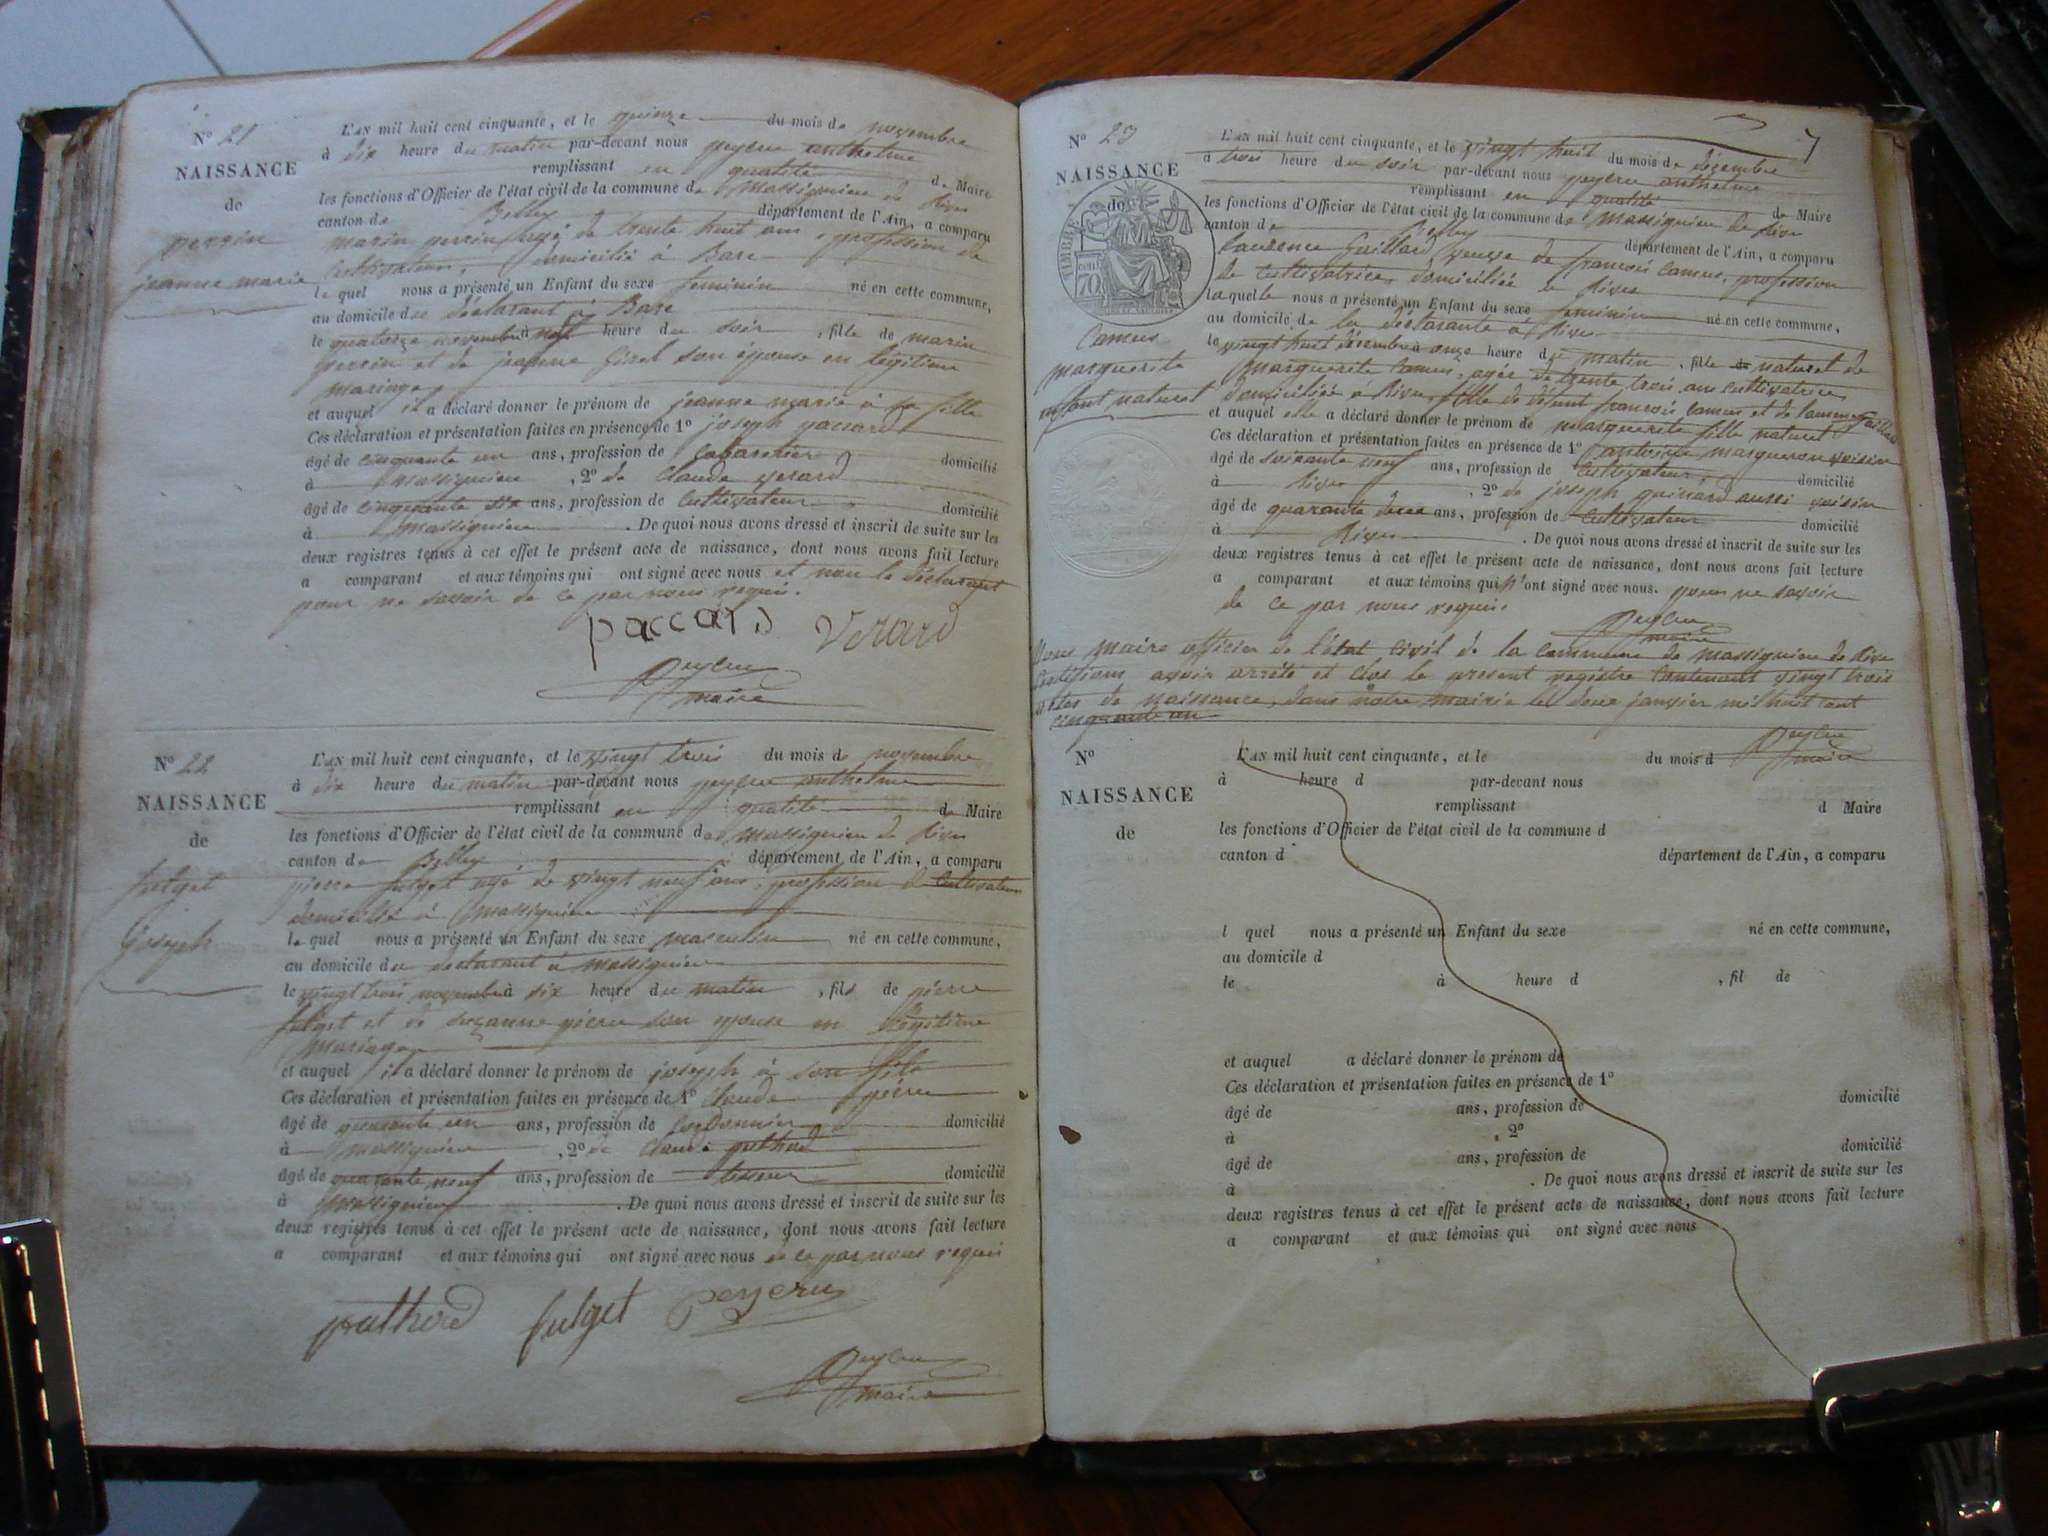 N° 21
NAISSANCE
de
perrin
jeanne marie
L'AN mil huit cent cinquante, et le quinze du mois de novembre
à dix heure du matin par-devant nous peyeru anthelme
remplissant en qualité de Maire
les fonctions d'Officier de l'état civil de la commune de Massignieu de Rives
canton de Belley département de l'Ain, a comparu
marin perrin agé de trente huit ans, profession de
Cultivateur, domicilié à
le quel nous a présenté un Enfant du sexe feminin né en cette commune,
au domicile du déclarant à
le quatorze novembre à heure du soir, fille de marin
perrin et de jeanne son épouse en legitime
mariage
et auquel il a déclaré donner le prénom de jeanne marie à sa fille
Ces déclaration et présentation faites en présence de 1° joseph paccard
âgé de cinquante un ans, profession de Cabaretier domicilié
à massignieu, 2° de Claude verard
âgé de cinquante six ans, profession de Cultivateur domicilié
à Massignieu. De quoi nous avons dressé et inscrit de suite sur les
deux registres tenus à cet effet le présent acte de naissance, dont nous avons fait lecture
a comparant et aux témoins qui ont signé avec nous et non le déclarant
pour ne savoir de ce par nous requis.
paccard Verard
maire
N° 22
NAISSANCE
de
fulget
joseph
L'AN mil huit cent cinquante, et le vingt trois du mois de novembre
à dix heure du matin par-devant nous peyeru anthelme
remplissant en qualité de Maire
les fonctions d'Officier de l'état civil de la commune de Massignieu de Rives
canton de Belley département de l'Ain, a comparu
pierre fulget agé de vingt neuf ans, profession de Cultivateur
domicilié à Massignieu
le quel nous a présenté un Enfant du sexe masculin né en cette commune,
au domicile du declarant à massignieu
le vingt trois novembre à six heure du matin, fils de pierre
fulget et de suzanne son epouse en légitime
Mariage
et auquel il a déclaré donner le prénom de joseph à son fils
Ces déclaration et présentation faites en présence de 1° Claude
âgé de quarante un ans, profession de Cordonnier domicilié
à massignieu, 2° de Claude
âgé de quarante neuf ans, profession de tisseur domicilié
à Massignieu. De quoi nous avons dressé et inscrit de suite sur les
deux registres tenus à cet effet le présent acte de naissance, dont nous avons fait lecture
a comparant et aux témoins qui ont signé avec nous de ce par nous requis
fulget
maire
N° 23
NAISSANCE
de
TIMBRE
70
Camus
marguerite
enfant naturel
7
L'AN mil huit cent cinquante, et le vingt huit du mois de décembre
à trois heure du soir par-devant nous peyeru anthelme
remplissant en qualité de Maire
les fonctions d'Officier de l'état civil de la commune de Massignieu de Rives
canton de Belley département de l'Ain, a comparu
laurence Gaillard veuve de françois Camus, profession
de Cultivatrice, domiciliée à Rives
laquelle nous a présenté un Enfant du sexe feminin né en cette commune,
au domicile de la déclarante à Rives
le vingt huit décembre à onze heure du matin, fille naturel de
Marguerite Camus, agée de trente trois ans Cultivatrice
domiciliée à Rives, fille de défunt françois Camus et de laurence Gaillard
et auquel elle a déclaré donner le prénom de Marguerite fille naturel
Ces déclaration et présentation faites en présence de 1° antoine voisin
âgé de soixante neuf ans, profession de Cultivateur domicilié
à Rives, 2° de joseph aussi voisin
âgé de quarante deux ans, profession de Cultivateur domicilié
à Rives. De quoi nous avons dressé et inscrit de suite sur les
deux registres tenus à cet effet le présent acte de naissance, dont nous avons fait lecture
a comparant et aux témoins qui n'ont signé avec nous. pour ne savoir
de ce par nous requis.
maire
Nous Maire officier de l'état Civil de la commune de Massignieu de Rive
Certifions avoir arrêté et clos le present registre contenant vingt trois
actes de naissance, dans notre mairie le deux janvier mil huit cent
cinquante un
maire
N°
NAISSANCE
de
L'AN mil huit cent cinquante, et le du mois d
à heure d par-devant nous
remplissant d Maire
les fonctions d'Officier de l'état civil de la commune d
canton d département de l'Ain, a comparu
l quel nous a présenté un Enfant du sexe né en cette commune,
au domicile d
le à heure d , fil de
et auquel a déclaré donner le prénom de
Ces déclaration et présentation faites en présence de 1°
âgé de ans, profession de domicilié
à , 2°
âgé de ans, profession de domicilié
à . De quoi nous avons dressé et inscrit de suite sur les
deux registres tenus à cet effet le présent acte de naissance, dont nous avons fait lecture
a comparant et aux témoins qui ont signé avec nous